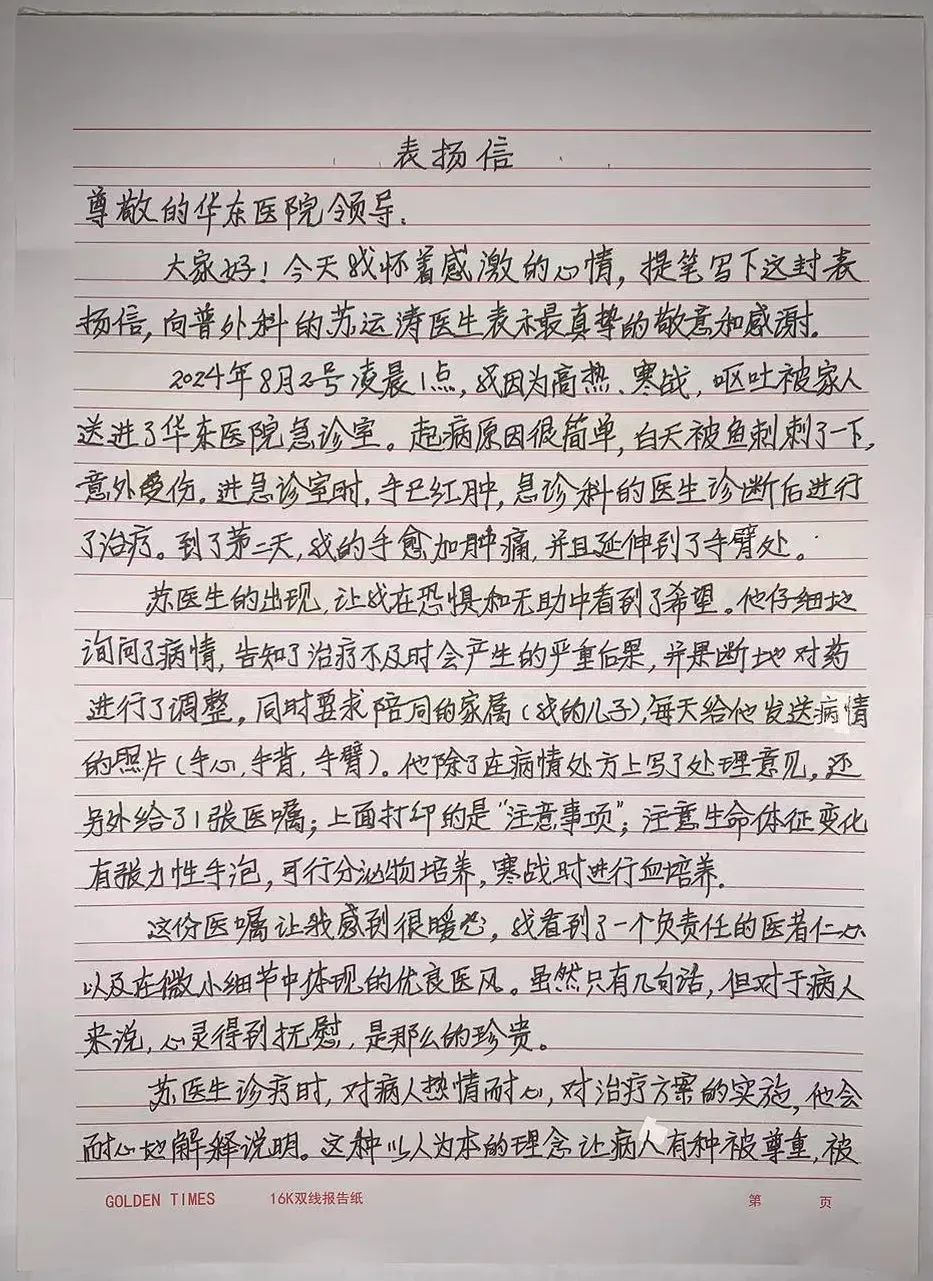 表扬信
尊敬的华东医院领导.
大家好！今天我怀着感激的心情，提笔写下这封表
扬信，向普外科的苏运涛医生表示最真挚的敬意和感谢.
2024年8月2号凌晨1点，我因为高热、寒战，呕吐被家人
送进了华东医院急诊室。起病原因很简单，白天被鱼刺刺了一下，
意外受伤。进急诊室时，手已红肿，急诊科的医生诊断后进行
了治疗。到了第二天，我的手愈加肿痛，并且延伸到了手臂处。
苏医生的出现，让我在恐惧和无助中看到了希望。他仔细地
询问了病情，告知了治疗不及时会产生的严重后果，并果断地对药
进行了调整，同时要求陪同的家属（我的儿子），每天给他发送病情
的照片（手心，手背，手臂）。他除了在病情处方上写了处理意见，还
另外给了1张医嘱；上面打印的是“注意事项”；注意生命体征变化
有张力性手泡，可行分泌物培养，寒战时进行血培养.
这份医嘱让我感到很暖心，我看到了一个负责任的医者仁心
以及在微小细节中体现的优良医风。虽然只有几句话，但对于病人
来说，心灵得到抚慰，是那么的珍贵。
苏医生诊疗时，对病人热情耐心，对治疗方案的实施，他会
耐心地解释说明。这种以人为本的理念让病人有种被尊重，被
GOLDEN TIMES 16K双线报告纸 第 页